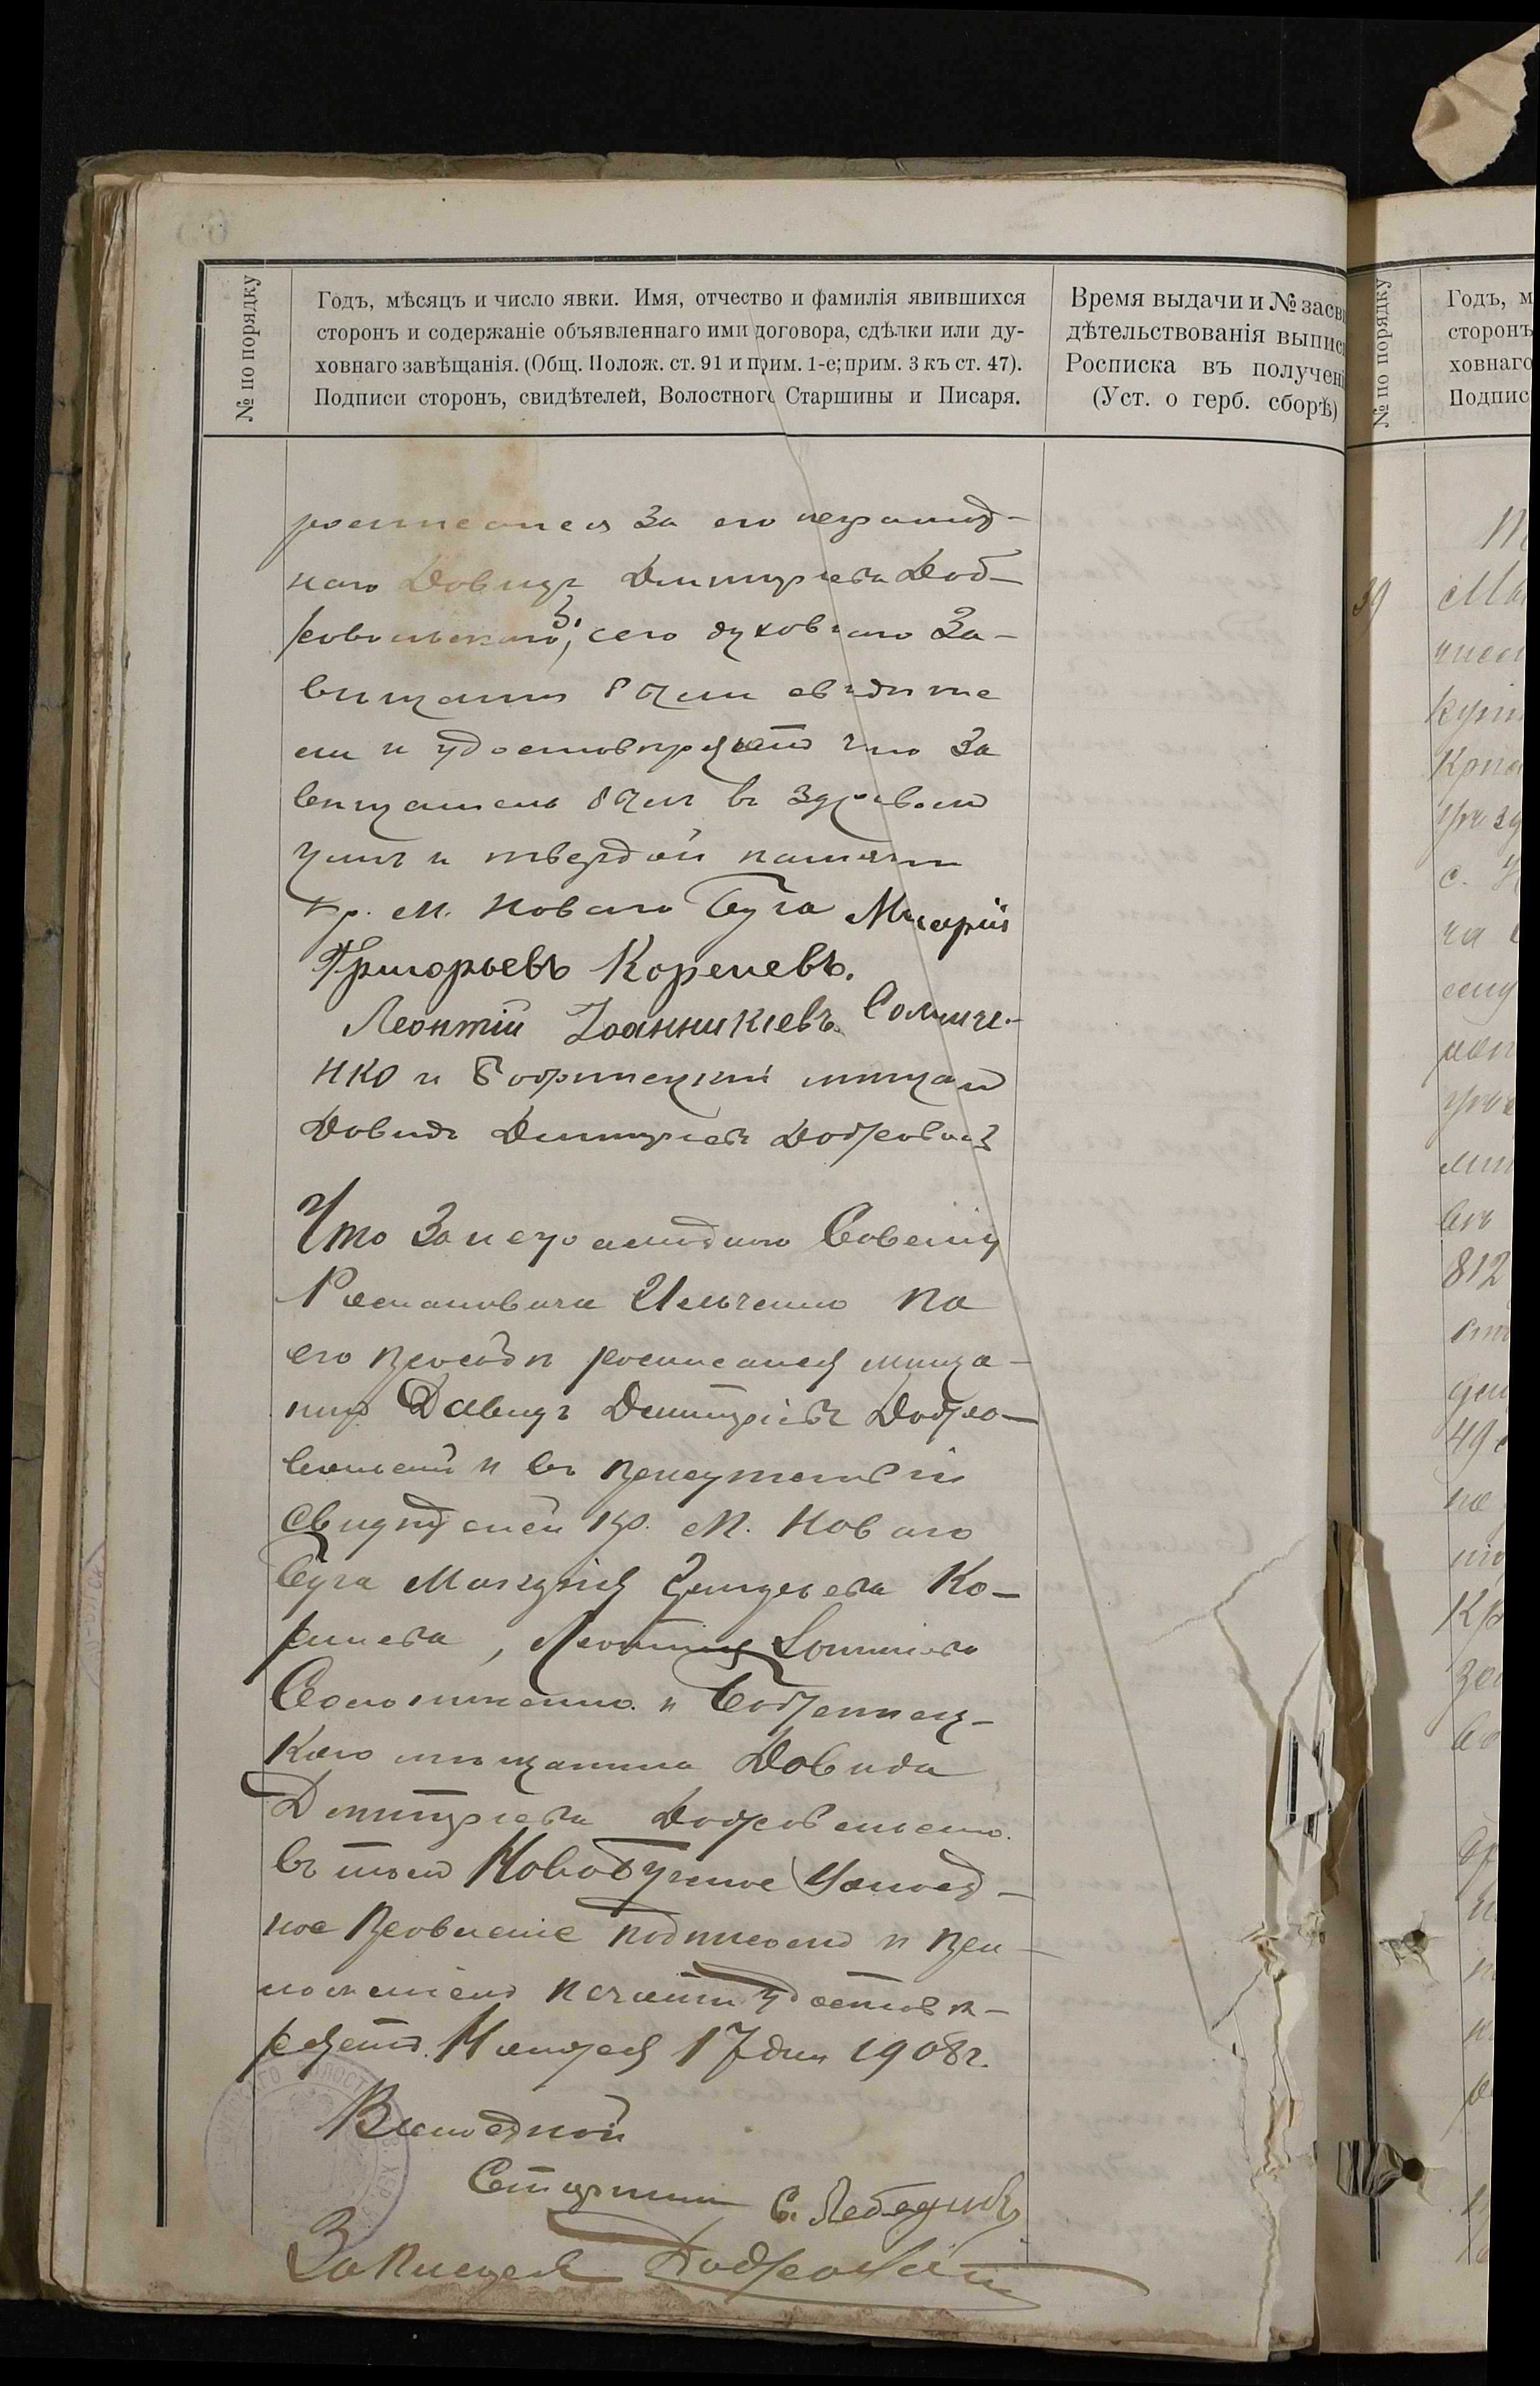 № по порядку
Годъ, мѣсяцъ и число явки. Имя, отчество и фамилія явившихся
сторонъ и содержаніе объявленнаго ими договора, сдѣлки или ду-
ховнаго завѣщанія. (Общ. Полож. ст. 91 и прим. 1-е; прим. 3 къ ст. 47).
Подписи сторонъ, свидѣтелей, Волостного Старшины и Писаря.
Время выдачи и № засви
дѣтельствованія выпис
Росписка въ получені
(Уст. о герб. сборѣ)
росписался за его неграмот-
наго Довидъ Дмитріевъ Доб-
ровольскаго, сего духовнаго За-
вищания были свидите
ли и удостовиряютъ что За
вищатель былъ въ здравомъ
уми и твердой памяти
кр. м. Новаго Буга Макарій
Григорьевъ Кореневъ.
Леонтій Іоанникіевъ Соломче-
нко и Бобринецкий мищан
Довидъ Дмитриевъ Добровол
Что За неграмотного Савелія
Романовича Ильченко по
его прозби росписался мища-
нин Давидъ Дмитріевъ Добро-
вольский и въ присутствіи
Свидителей кр. м. Новаго
Буга Макарія Григорьева Ко-
ренева, Леонтия
и Бобринец-
каго мищанина Довида
Дмитриева Добровольскаго
въ томъ Новобугское Волост-
ное Правление подписомъ и при
ложениемъ печати удостови-
ряетъ. 17 дня 1908 г.
Волостной
Старшина С. Лебедин
Записалъ
№ по порядку
Годъ, м
сторонъ
ховнаго
Подпис
39
812